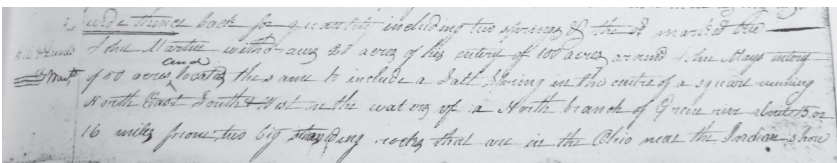 wide thence back for quantity including two springs & the sd marked tree
John Martin withdraws 20 acres of his entery of 100 acres around John Mays entery
of 50 acres and locates the same to include a Salt Spring in the centre of a square running
North East South & West on the waters of a North branch of Green river about 15 or
16 miles from two big standing rocks that are in the Ohio near the Indian shore